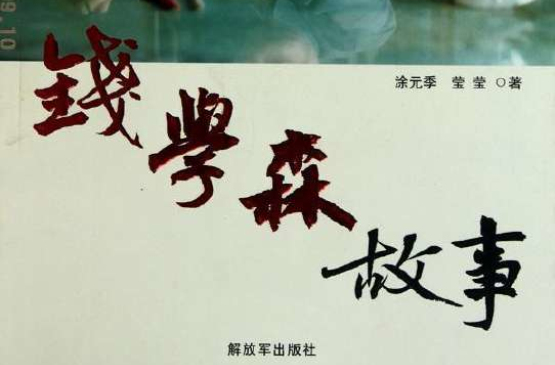 9.10
涂元季 莹莹 ○著
錢學森
故事
解放军出版社